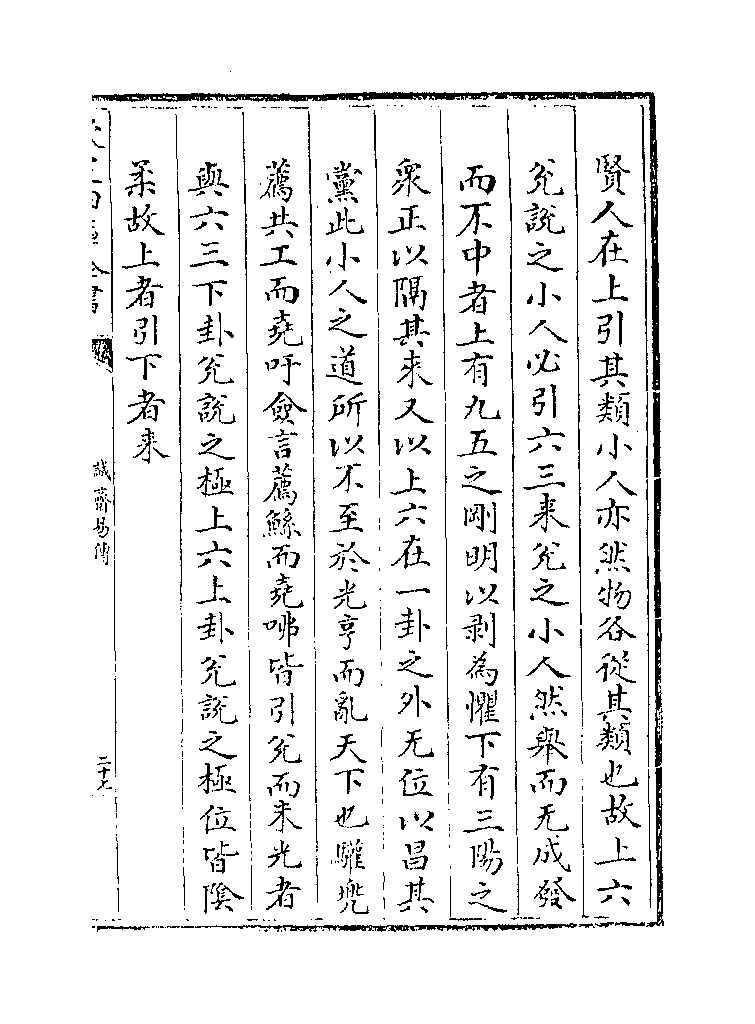 賢人在上引其類小人亦然物各從其類也故上六
兊說之小人必引六三来兊之小人然舉而无成發
而不中者上有九五之剛明以剥為懼下有三陽之
衆正以隔其来又以上六在一卦之外无位以昌其
黨此小人之道所以不至於光亨而亂天下也驩兜
薦共工而堯吁僉言薦鯀而堯咈皆引兊而未光者
與六三下卦兊說之極上六上卦兊說之極位皆隂
柔故上者引下者来
欽定四庫全書
誠齋易傳
二十七